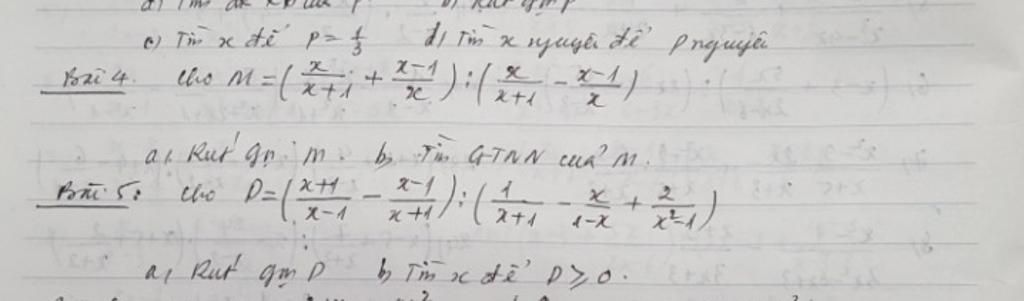 c) Tìm x để P = 1/3 d) Tìm x nguyên để P nguyên
Bài 4. Cho M = (x/(x+1) + (x-1)/x) : (x/(x+1) - (x-1)/x)
a, Rút gọn M. b, Tìm GTNN của M.
Bài 5: Cho D = ((x+1)/(x-1) - (x-1)/(x+1)) : (1/(x+1) - x/(1-x) + 2/(x²-1))
a, Rút gọn D b, Tìm x để D ≥ 0.